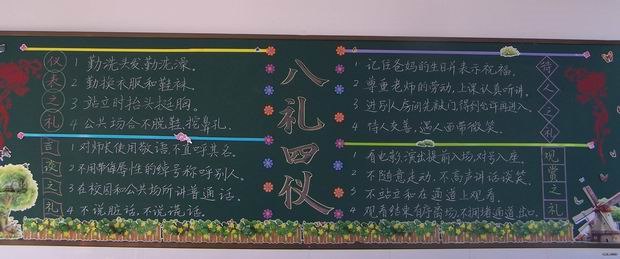 八礼四仪
仪表之礼
1 勤洗头发,勤洗澡。
2 勤换衣服和鞋袜。
3 站立时抬头挺胸。
4 公共场合不脱鞋,挖鼻孔。
言谈之礼
1 对师长使用敬语,不直呼其名。
2 不用带侮辱性的绰号称呼别人。
3 在校园和公共场所讲普通话。
4 不说脏话,不说谎话。
待人之礼
1 记住爸妈的生日并表示祝福。
2 尊重老师的劳动,上课认真听讲。
3 进别人房间先敲门,得到允许再进入。
4 待人友善,遇人面带微笑。
观赏之礼
1 有电影、演出提前入场,对号入座。
2 不随意走动,不高声讲话谈笑。
3 不站立和在通道上观看。
4 观看结束有序离场,不拥堵通道出口。